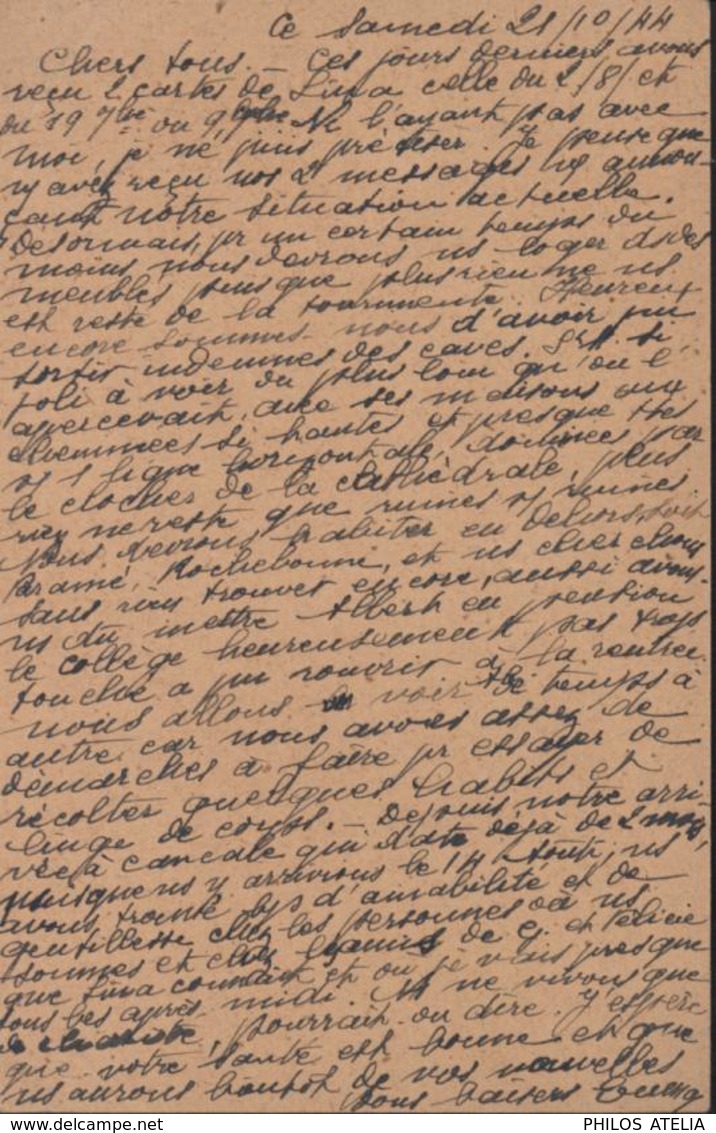 Ce Samedi 21/10/44
Chers tous. – Ces jours derniers avons
reçu 2 cartes de Lina celle du 2/8/ et
du 19 7bre ou 9 7bre Ne l'ayant pas avec
moi, je ne puis préciser. Je pense que
vs avez reçu nos 2 messages vs annon-
çant notre situation actuelle.
Desormais, pr un certain temps du
moins nous devrons ns loger ds des
meublés puisque plus rien ne ns
est resté de la tourmente. Heureux
encore sommes-nous d'avoir pu
sortir indemnes des caves. St M. si
joli à voir du plus loin qu'on l'
apercevait, avec ses maisons aux
cheminées si hautes et presque ttes
s/ 1 ligne horizontale, dominées par
le clocher de la cathédrale, plus
rien ne reste que ruines s/ ruines
Nous devrons habiter en dehors, soit
Paramé, Rochebonne, et ns cherchons
sans rien trouver encore, aussi avons-
ns du mettre Albert en pension
le collège heureusement pas trop
touché a pu rouvrir à la rentrée.
nous allons le voir de temps à
autre car nous avons assez de
démarches à faire pr essayer de
récolter quelques habits et
linge de corps. – Depuis notre arri-
vée à Cancale qui date déjà de 2 mois,
puisque ns y arrivions le 14 Août, ns
avons trouvé bp d'amabilité et de
gentillesse chez les personnes où ns
sommes et chez l'amie de G. et Félicie
que Lina connait et où je vais presque
tous les après-midi. Ns ne vivons que
de charité, pourrait-on dire. J'espère
que votre santé est bonne et que
ns aurons bientôt de vos nouvelles
Bons baisers
PHILOS ATELIA